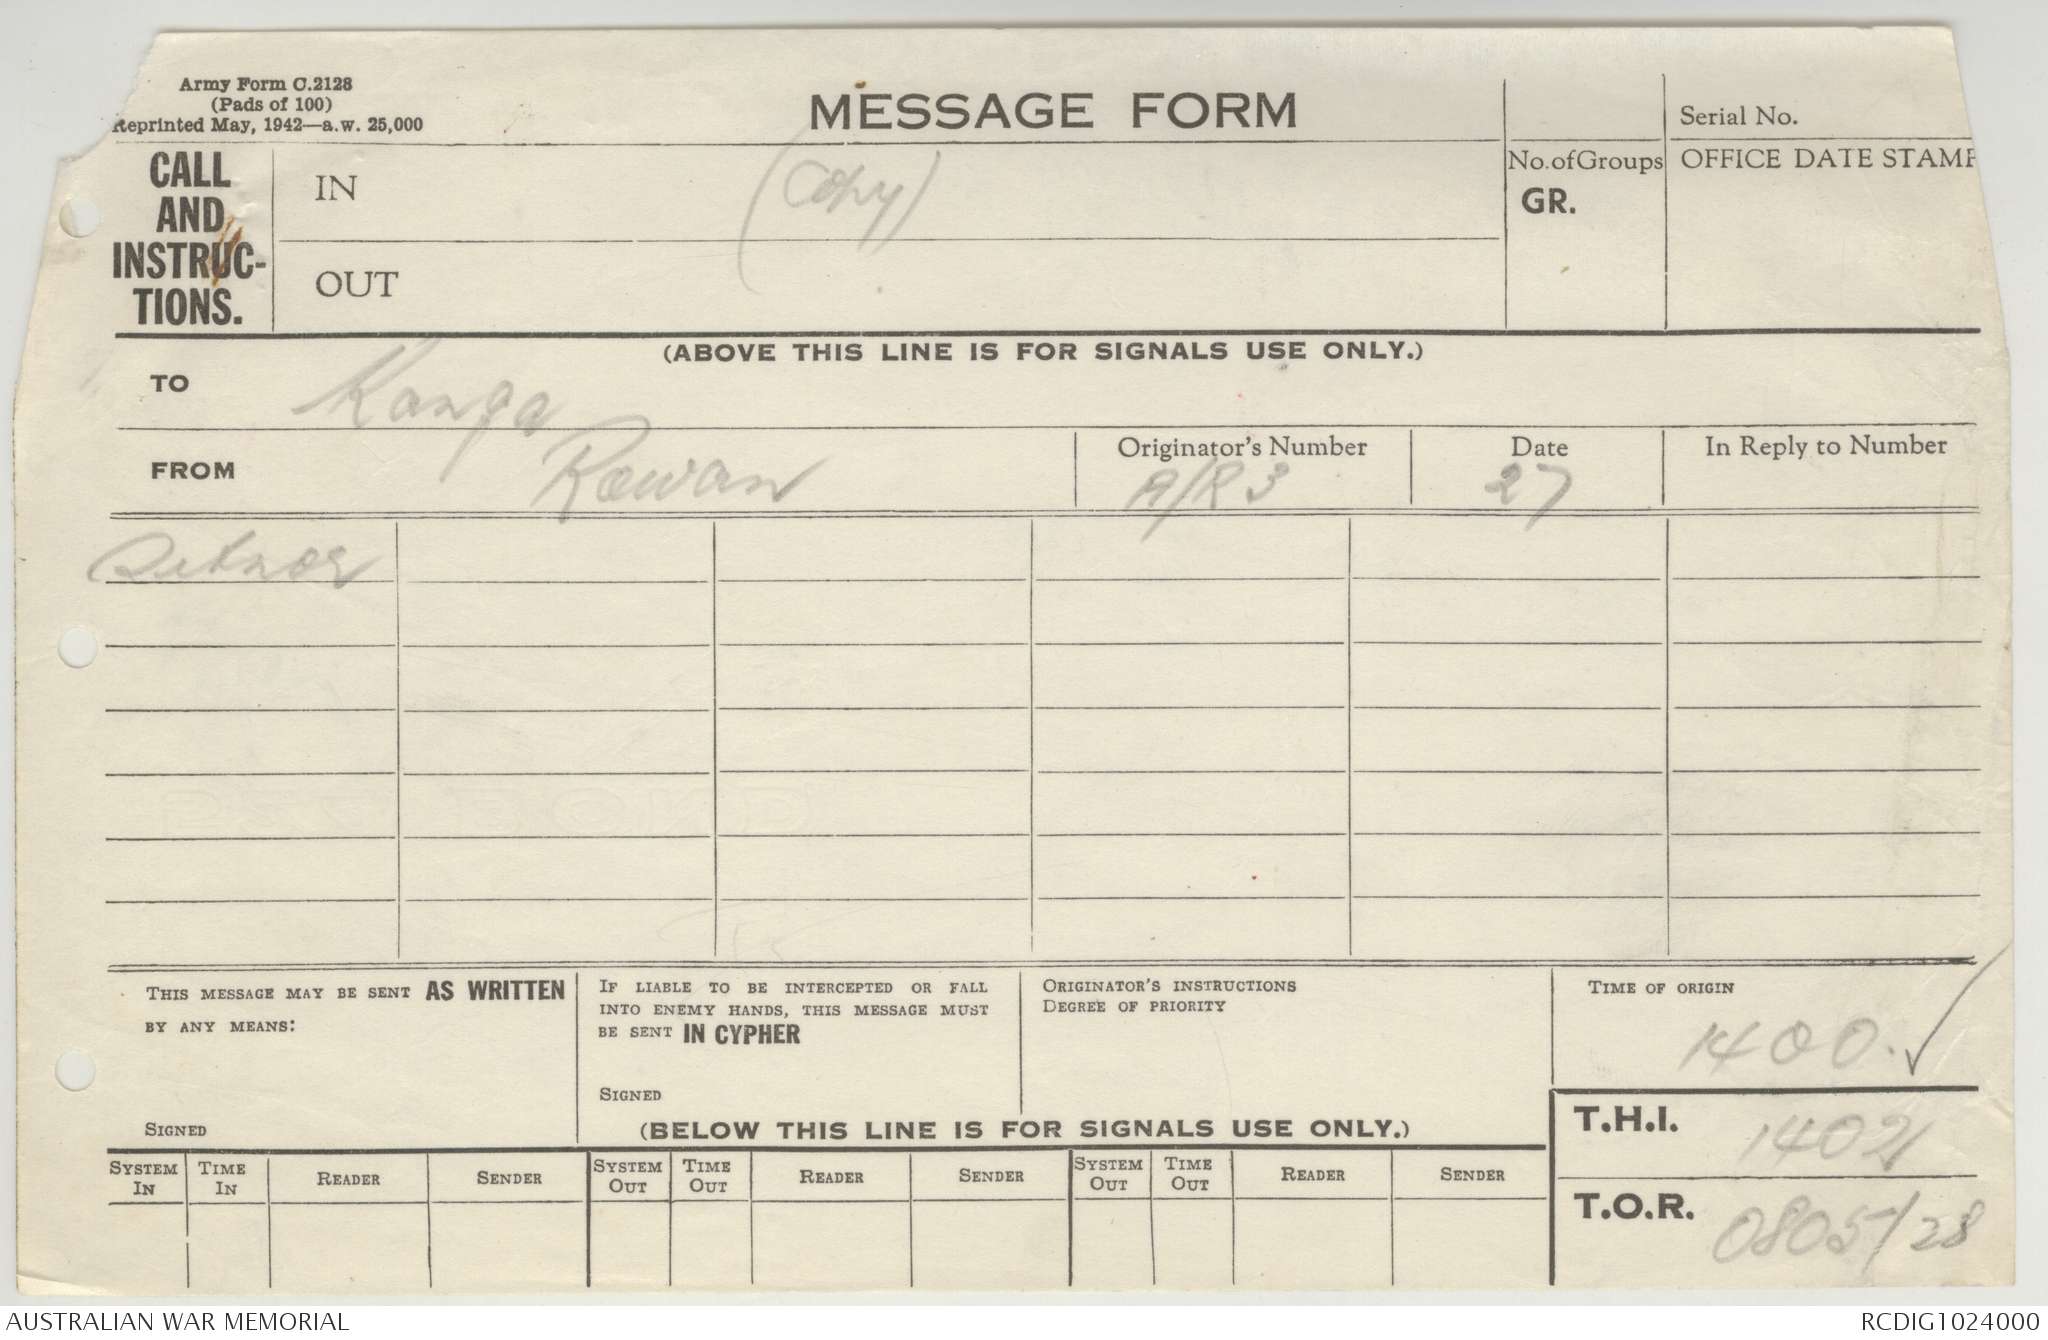 Army Form C.2128
(Pads of 100)
Reprinted May, 1942—a.w. 25,000
MESSAGE FORM
Serial No.
CALL AND INSTRUC-TIONS.
IN
(Copy)
No. of Groups
GR.
OFFICE DATE STAMP
OUT
(ABOVE THIS LINE IS FOR SIGNALS USE ONLY.)
TO Kanga
FROM Rowan
Originator's Number
A/R 3
Date
27
In Reply to Number
Sitnor
THIS MESSAGE MAY BE SENT AS WRITTEN
BY ANY MEANS:
SIGNED
IF LIABLE TO BE INTERCEPTED OR FALL
INTO ENEMY HANDS, THIS MESSAGE MUST
BE SENT IN CYPHER
SIGNED
ORIGINATOR'S INSTRUCTIONS
DEGREE OF PRIORITY
TIME OF ORIGIN
1400.
(BELOW THIS LINE IS FOR SIGNALS USE ONLY.)
T.H.I. 1402
T.O.R. 0805/28
SYSTEM IN
TIME IN
READER
SENDER
SYSTEM OUT
TIME OUT
READER
SENDER
SYSTEM OUT
TIME OUT
READER
SENDER
AUSTRALIAN WAR MEMORIAL
RCDIG1024000